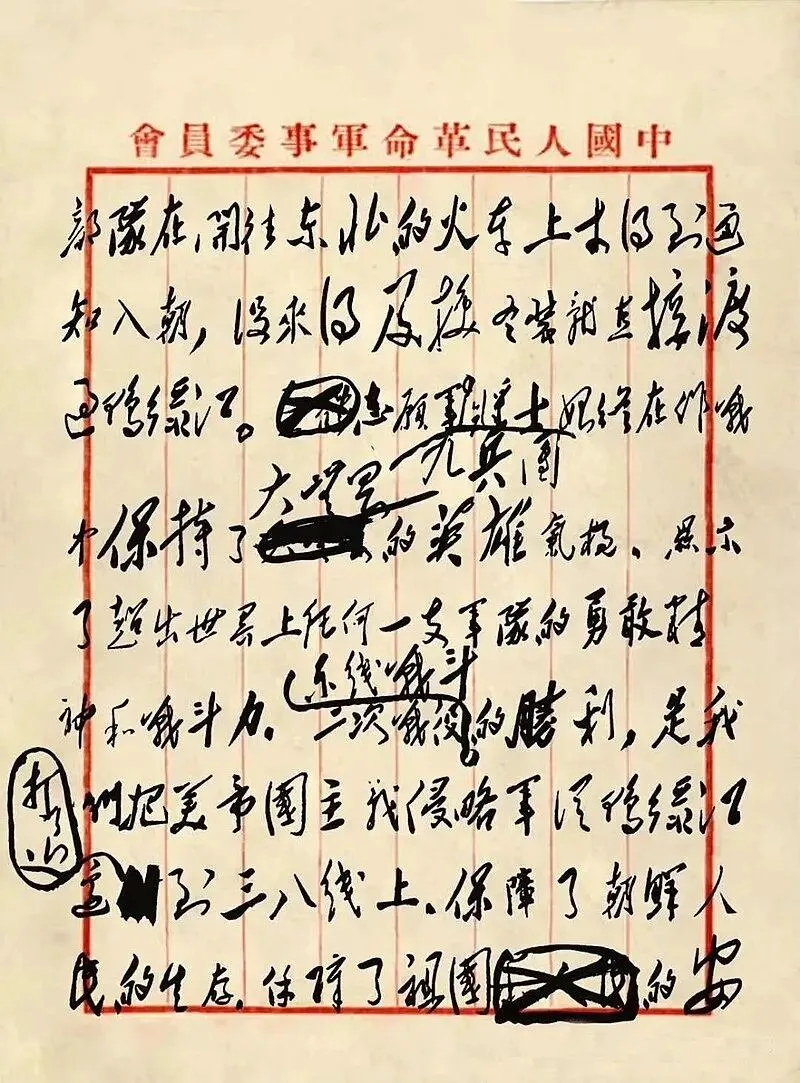 中國人民革命軍事委員會
部隊在開往东北的火车上才得到通
知入朝,没來得及换冬装就直接渡
过鸭绿江。志愿軍将士始终在作战
九兵團
中保持了的英雄氣概、显示
了超出世界上任何一支軍隊的勇敢精
东线战斗
神和战斗力。二次战役的勝利,是我
們把美帝國主我侵略軍从鸭绿江
打
边到三八线上。保障了朝鲜人
民的生存,保障了祖國的安